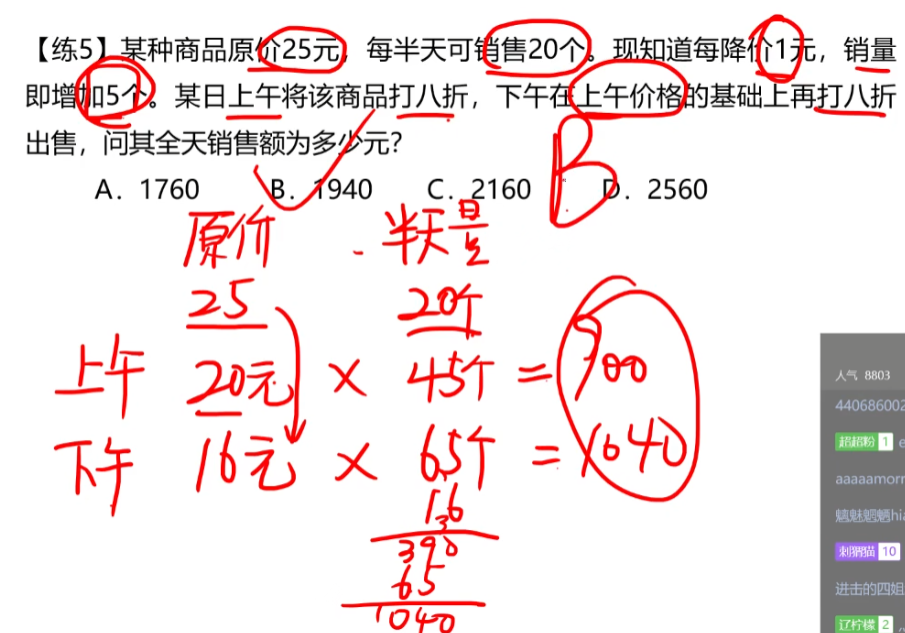 【练5】某种商品原价25元，每半天可销售20个。现知道每降价1元，销量
即增加5个。某日上午将该商品打八折，下午在上午价格的基础上再打八折
出售，问其全天销售额为多少元？
A. 1760 B. 1940 C. 2160 D. 2560
B
原价 半天量
25 20个
上午 20元 × 45个 = 900
下午 16元 × 65个 = 1040
16
390
65
1040
人气 8803
440686002
超超粉 1 e
aaaaamorr
魑魅魍魉hia
刺猬猫 10
进击的四姐
辽柠檬 2